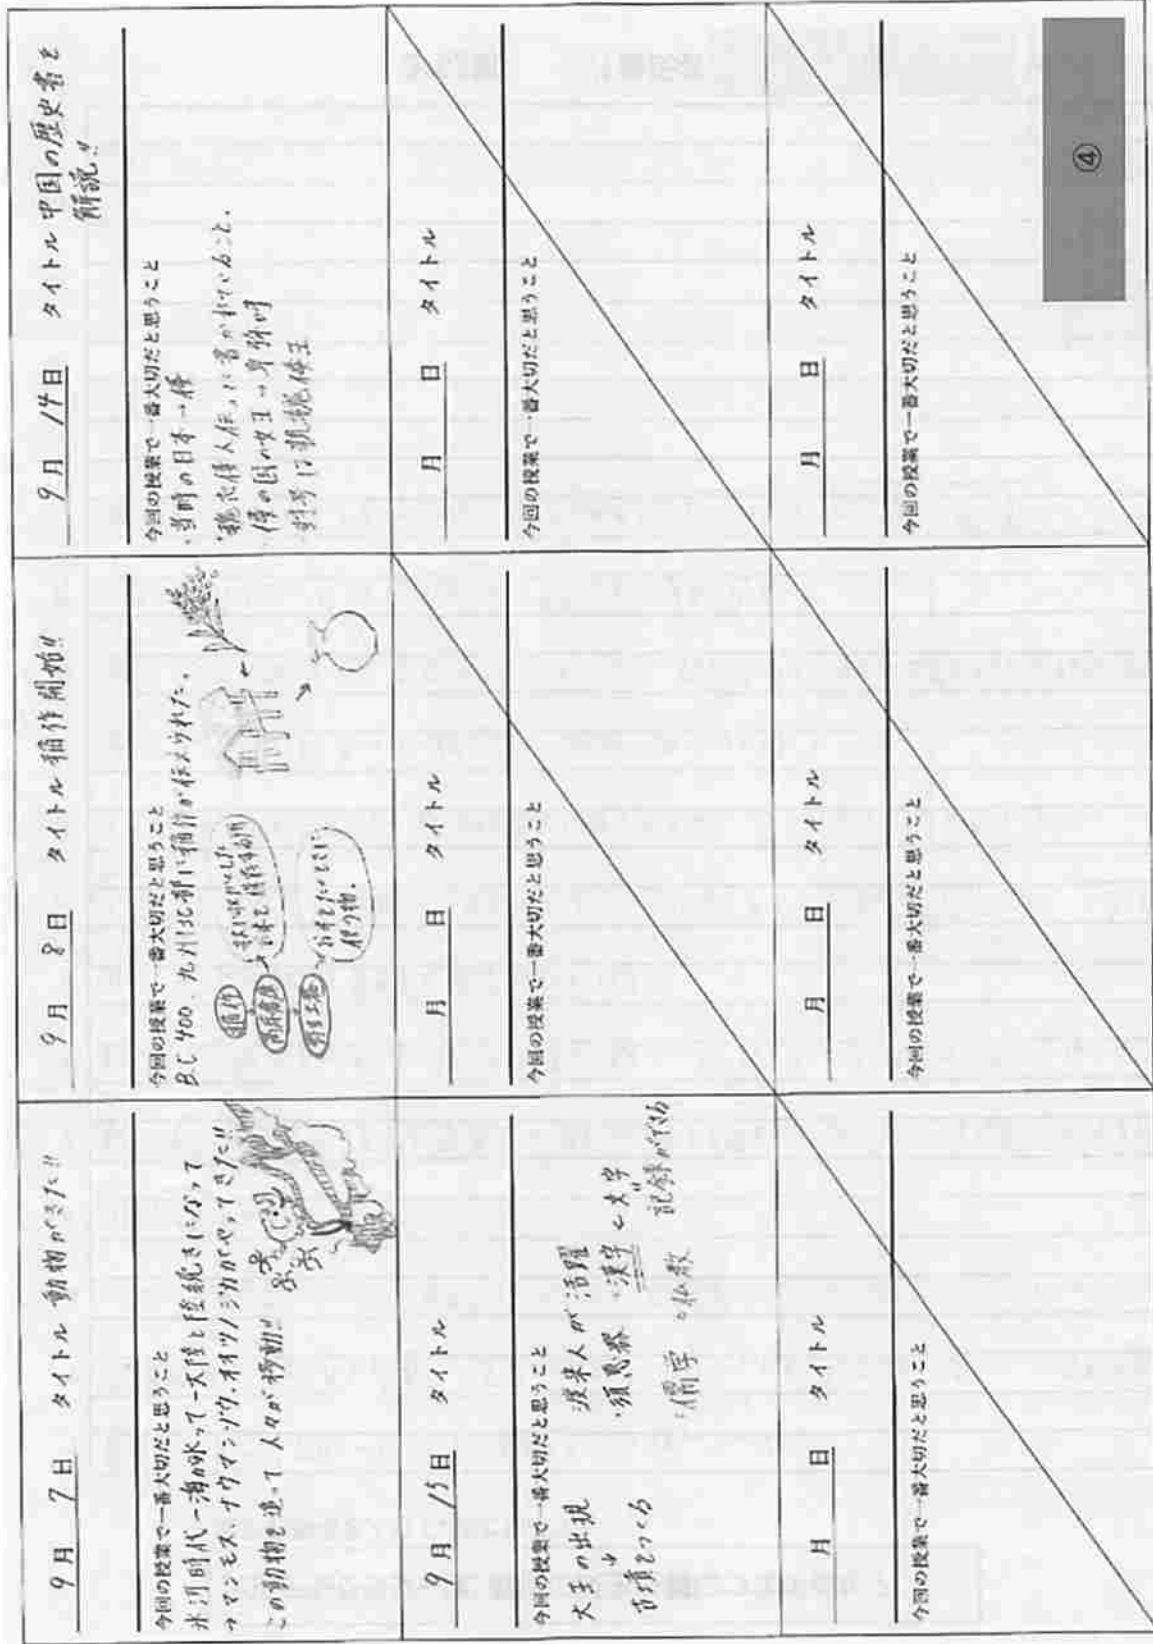 9月 7日 タイトル 動物がきた!!
今回の授業で一番大切だと思うこと
氷河時代→海が氷って大陸と陸続きになって
マンモス、ナウマンゾウ、オオツノジカがやってきた!!
この動物を追って人々が移動!!
9月 8日 タイトル 稲作開始!!
今回の授業で一番大切だと思うこと
B.C 400、九州北部に稲作が伝えられた。
稲作
高床倉庫
弥生土器
9月 14日 タイトル 中国の歴史書を
解説!!
今回の授業で一番大切だと思うこと
・当時の日本→倭
・魏志倭人伝に書かれていること。
倭の国の女王→卑弥呼
称号は親魏倭王
9月 15日 タイトル
今回の授業で一番大切だと思うこと
大王の出現
↓
古墳をつくる
渡来人が活躍
・須恵器 ・漢字←文字
記録ができる
・儒学 ・仏教
月 日 タイトル
今回の授業で一番大切だと思うこと
月 日 タイトル
今回の授業で一番大切だと思うこと
月 日 タイトル
今回の授業で一番大切だと思うこと
月 日 タイトル
今回の授業で一番大切だと思うこと
月 日 タイトル
今回の授業で一番大切だと思うこと
④